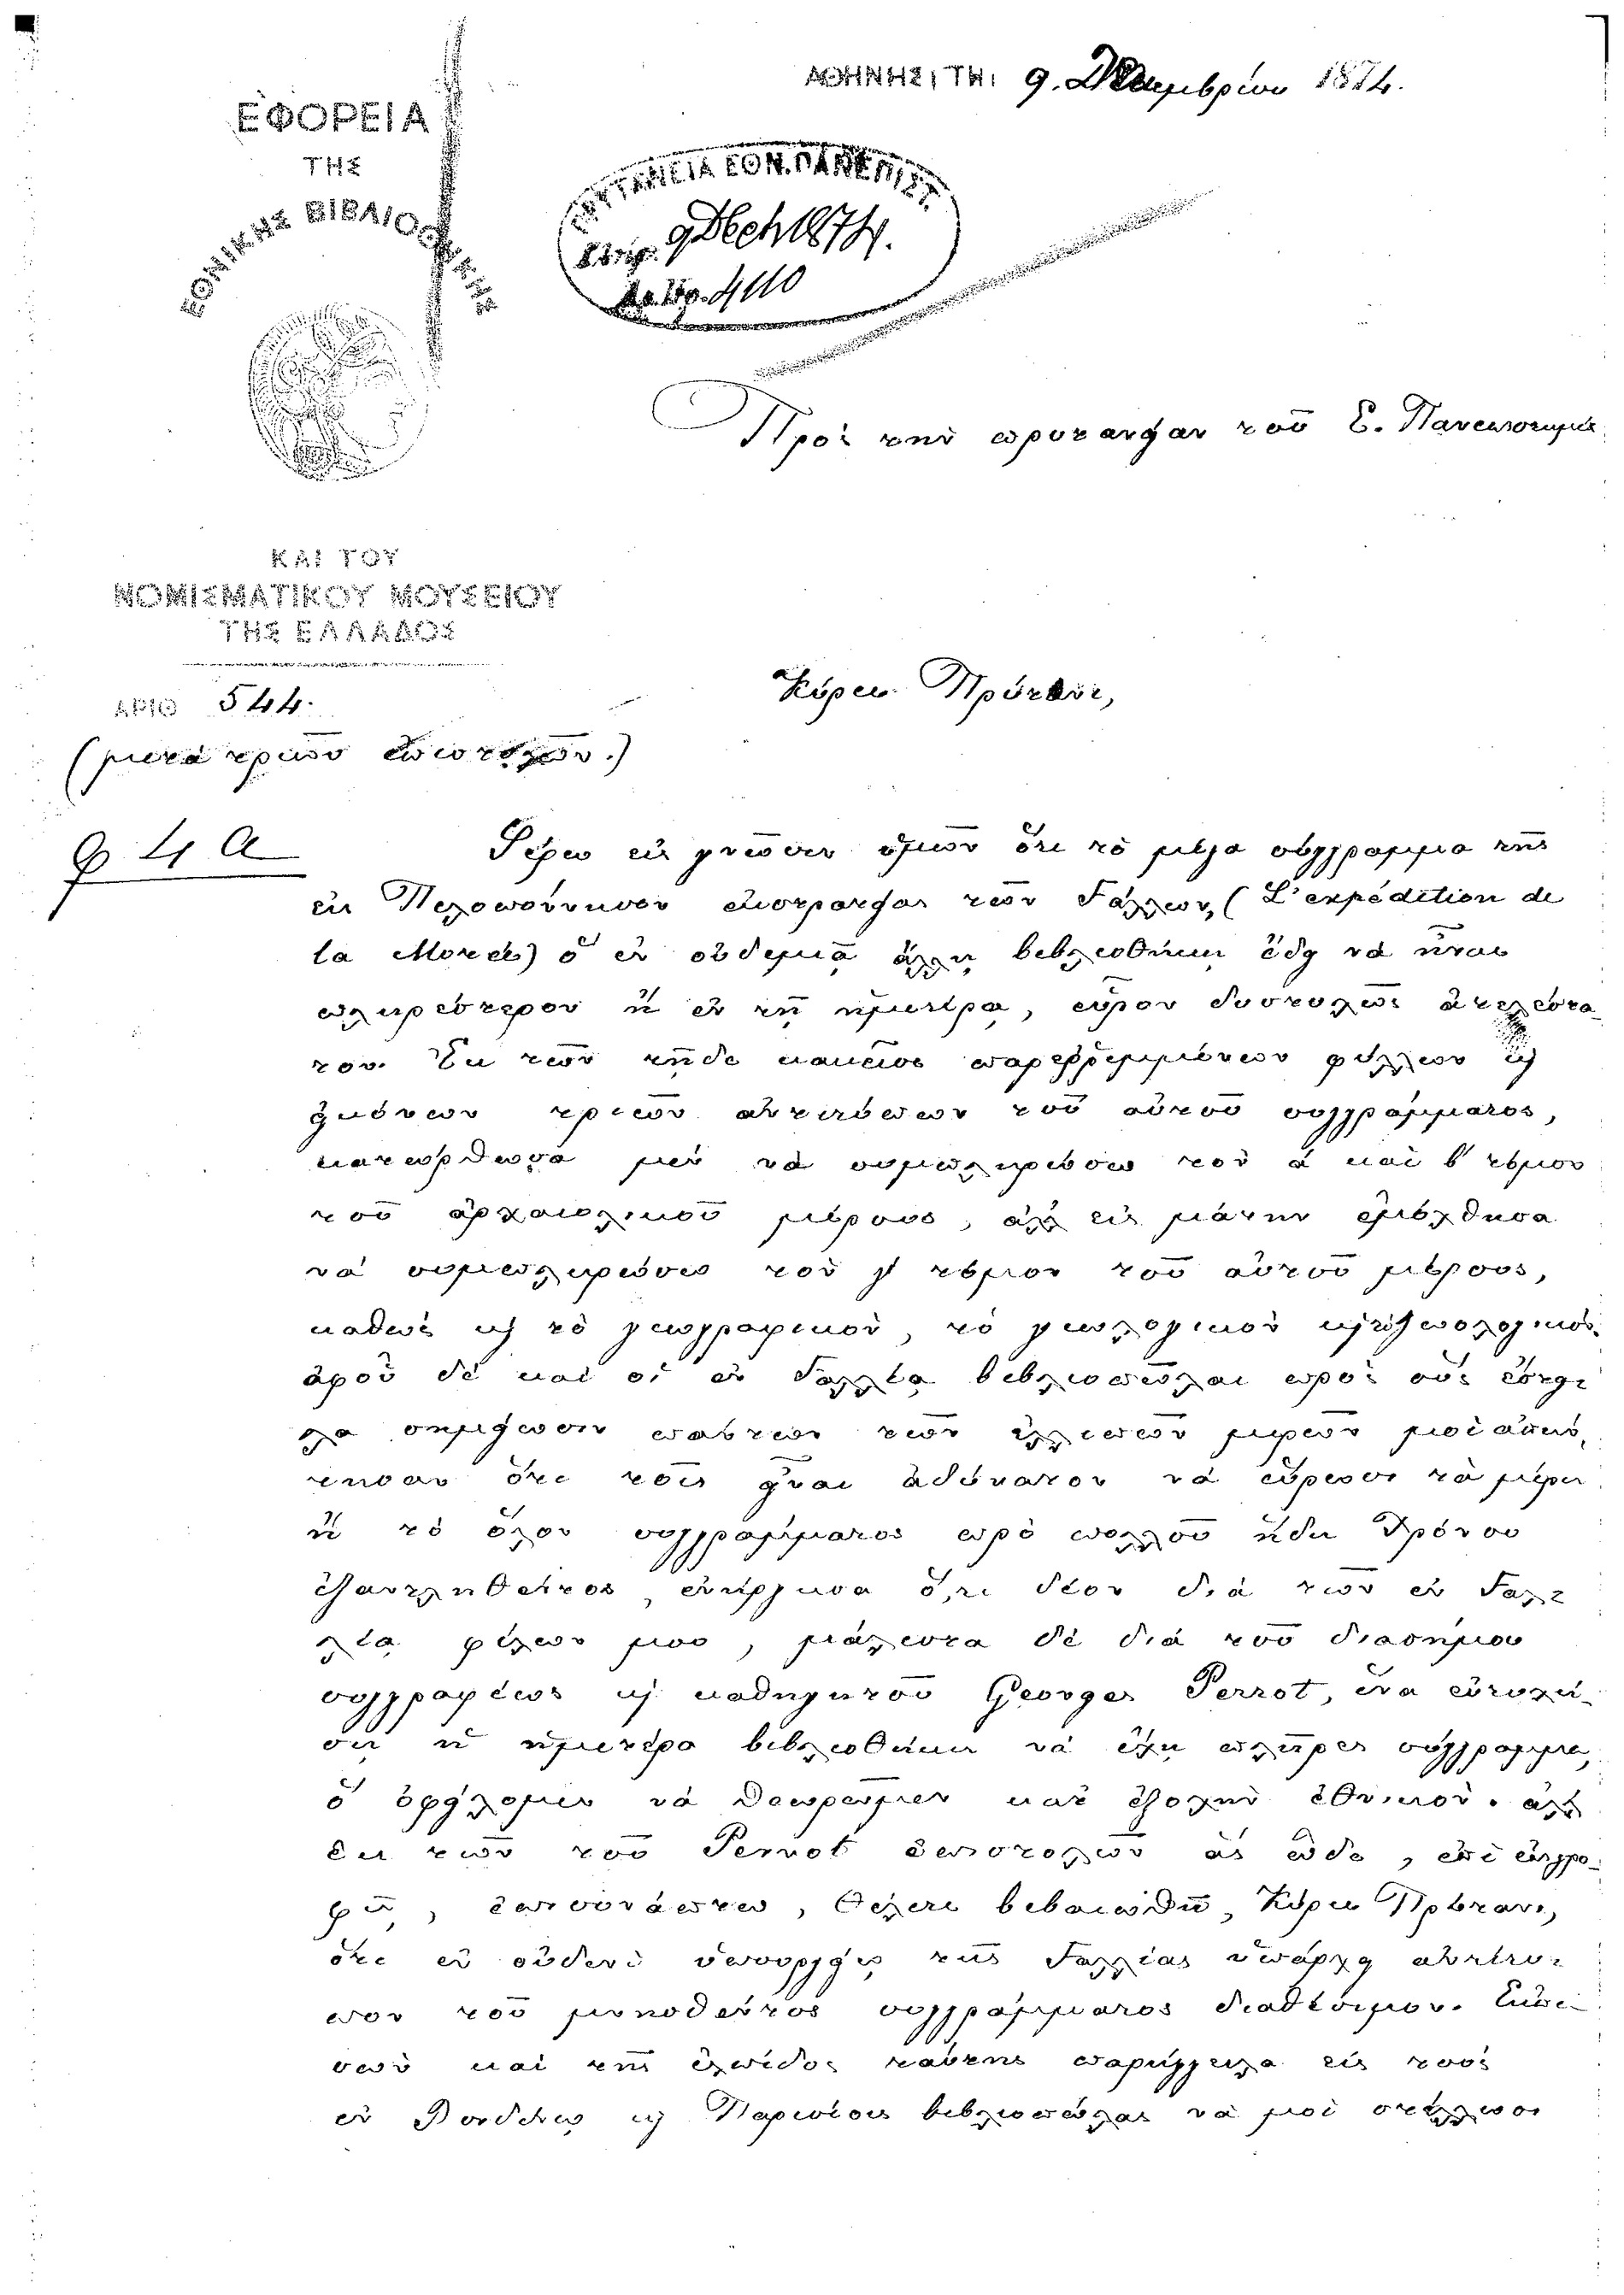 ΑΘΗΝΗΣΙ, ΤΗΙ 9. Δεκεμβρίου 1874.
ΕΦΟΡΕΙΑ
ΤΗΣ
ΕΘΝΙΚΗΣ ΒΙΒΛΙΟΘΗΚΗΣ
ΠΡΥΤΑΝΕΙΑ ΕΘΝ. ΠΑΝΕΠΙΣΤ.
9 Δεκ 1874.
Αρ. Πρ. 4110
Πρὸς τὴν πρυτανείαν τοῦ Ἐ. Πανεπιστημίου
ΚΑΙ ΤΟΥ
ΝΟΜΙΣΜΑΤΙΚΟΥ ΜΟΥΣΕΙΟΥ
ΤΗΣ ΕΛΛΑΔΟΣ
ΑΡΙΘ 544.
Κύριε Πρύτανι,
(μετὰ τριῶν ἐπιστολῶν.)
φ 4 α
Φέρω εἰς γνῶσιν ὑμῶν ὅτι τὸ μέγα σύγγραμμα τῆς
εἰς Πελοπόννησον ἐκστρατείας τῶν Γάλλων, (L'expédition de
la Morée) ὃ ἐν οὐδεμιᾷ ἄλλῃ βιβλιοθήκῃ ἔδει νὰ ἦναι
πληρέστερον ἢ ἐν τῇ ἡμετέρᾳ, εὗρον δυστυχῶς ἀτελέστα-
τον. Ἐκ τῶν τῇδε κακεῖσε παρερριμμένων φύλλων κ̀
εἰκόνων τριῶν ἀντιτύπων τοῦ αὐτοῦ συγγράμματος,
κατώρθωσα μὲν νὰ συμπληρώσω τὸν α΄ καὶ β΄ τόμον
τοῦ ἀρχαιολογικοῦ μέρους, ἀλλ' εἰς μάτην ἐμόχθησα
νὰ συμπληρώσω τὸν γ΄ τόμον τοῦ αὐτοῦ μέρους,
καθὼς κ̀ τὸ γεωγραφικὸν, τὸ γεωλογικὸν κ̀ τὸ ζωολογικόν.
ἀφοῦ δὲ καὶ οἱ ἐν Γαλλίᾳ βιβλιοπῶλαι πρὸς οὓς ἔστει-
λα σημείωσιν πάντων τῶν ἐλλιπῶν μερῶν μοὶ ἀπήν-
τησαν ὅτι τοῖς εἶναι ἀδύνατον νὰ εὕρωσι τὰ μέρη
ἢ τὸ ὅλον συγγράμματος πρὸ πολλοῦ ἤδη χρόνου
ἐξαντληθέντος, ἐνήργησα ὅ,τι δέον διὰ τῶν ἐν Γαλ-
λίᾳ φίλων μου, μάλιστα δὲ διὰ τοῦ διασήμου
συγγραφέως κ̀ καθηγητοῦ Georges Perrot, ἵνα εὐτυχή-
σῃ ἡ ἡμετέρα βιβλιοθήκη νὰ ἔχῃ πλῆρες σύγγραμμα,
ὃ ὀφείλομεν νὰ θεωρῶμεν κατ' ἐξοχὴν ἐθνικόν. ἀλλ'
ἐκ τῶν τοῦ Perrot ἐπιστολῶν ἃς ὧδε, ἐπὶ ἐπιστρο-
φῇ, ἐπισυνάπτω, θέλετε βεβαιωθῆ, Κύριε Πρύτανι,
ὅτι ἐν οὐδενὶ ὑπουργείῳ τῆς Γαλλίας ὑπάρχει ἀντίτυ-
πον τοῦ μνησθέντος συγγράμματος διαθέσιμον. Ἐκπε-
σὼν καὶ τῆς ἐλπίδος ταύτης παρήγγειλα εἰς τοὺς
ἐν Λονδίνῳ κ̀ Παρισίοις βιβλιοπώλας νὰ μοὶ στείλωσι